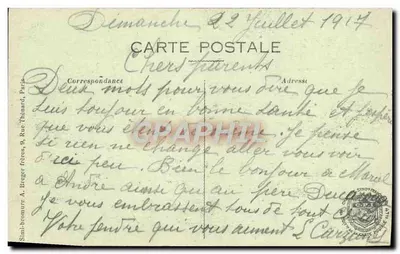 Demanche 22 Juillet 1917
CARTE POSTALE
Chers parents
Correspondance
Adresse
Deux mots pour vous dire que je
suis toujour en bonne santé et j'espère
que vous je pense
si rien ne change aller vous voir
d'ici peu. Bien le bonjour a
a Andre ainsi qu au père
je vous embrassent tous de tout
Votre gendre qui vous aiment
Simi-bromure A. Breger frères, 9, Rue Thénard, Paris